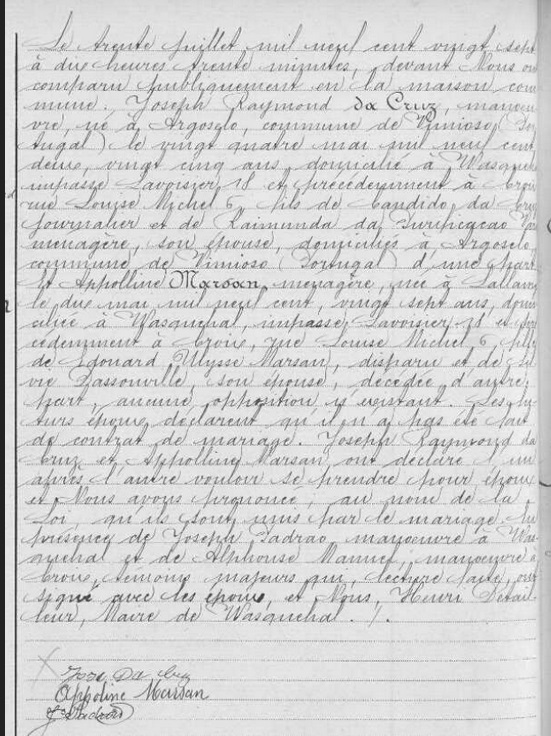 Le trente juillet mil neuf cent vingt sept
à dix heures trente minutes, devant Nous ont
comparu publiquement en la maison com
mune. Joseph Raymond da Cruz, manoeu
vre, né à Argoselo, commune de Vimioso (Por
tugal) le vingt quatre mai mil neuf cent
deux, vingt cinq ans, domicilié à Wasquehal
impasse Lavoisier, 18 et précédemment à Croix
rue Louise Michel 6, fils de Candido da Cruz
journalier et de Raimunda da Purificacao
ménagère, son épouse, domiciliés à Argoselo,
commune de Vimioso (Portugal) d'une part
Et Appolline Marsan, ménagère, née à Lallaing
le dix mai mil neuf cent, vingt sept ans, domi
ciliée à Wasquehal, impasse Lavoisier 18 et pré
cédemment à Croix, rue Louise Michel, 6, fille
de Edouard Ulysse Marsan, disparu et de
Dassonville, son épouse, décédée, d'autre
part, aucune opposition n'existant. Les fu
turs époux déclarent qu'il n'a pas été fait
de contrat de mariage. Joseph Raymond da
Cruz et Appolline Marsan, ont déclaré l'un
après l'autre vouloir se prendre pour époux
et Nous avons prononcé, au nom de la
Loi, qu'ils sont unis par le mariage. En
présence de Joseph Padrao, manoeuvre à Was
quehal et de Alphonse, manoeuvre à
Croix, témoins majeurs qui, lecture faite, ont
signé avec les époux, et Nous, Henri Détail
leur, Maire de Wasquehal. /.
Jose Da Cruz
Appoline Marsan
J Padrao